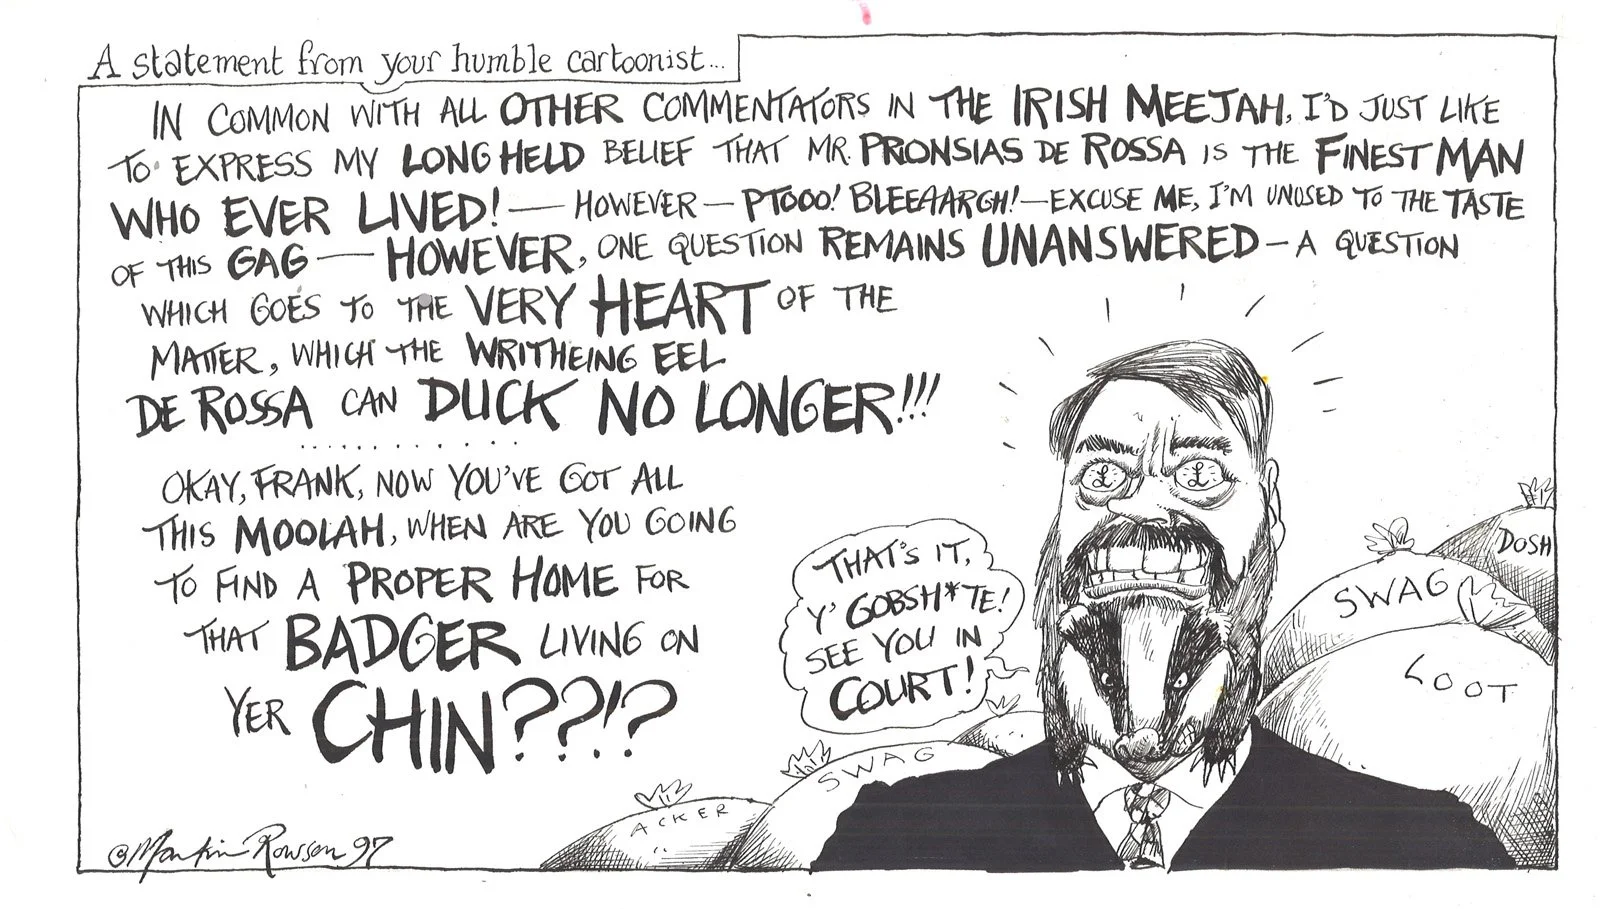 A statement from your humble cartoonist...
IN COMMON WITH ALL OTHER COMMENTATORS IN THE IRISH MEEJAH, I'D JUST LIKE
TO EXPRESS MY LONG HELD BELIEF THAT MR. PRONSIAS DE ROSSA IS THE FINEST MAN
WHO EVER LIVED! — HOWEVER — PTOOO! BLEEAARGH! — EXCUSE ME, I'M UNUSED TO THE TASTE
OF THIS GAG — HOWEVER, ONE QUESTION REMAINS UNANSWERED — A QUESTION
WHICH GOES TO THE VERY HEART OF THE
MATTER, WHICH THE WRITHEING EEL
DE ROSSA CAN DUCK NO LONGER!!!
...........
OKAY, FRANK, NOW YOU'VE GOT ALL
THIS MOOLAH, WHEN ARE YOU GOING
TO FIND A PROPER HOME FOR
THAT BADGER LIVING ON
YER CHIN??!?
THAT'S IT,
Y' GOBSH*TE!
SEE YOU IN
COURT!
£ £
DOSH
SWAG
LOOT
SWAG
ACKER
© Martin Rowson 97